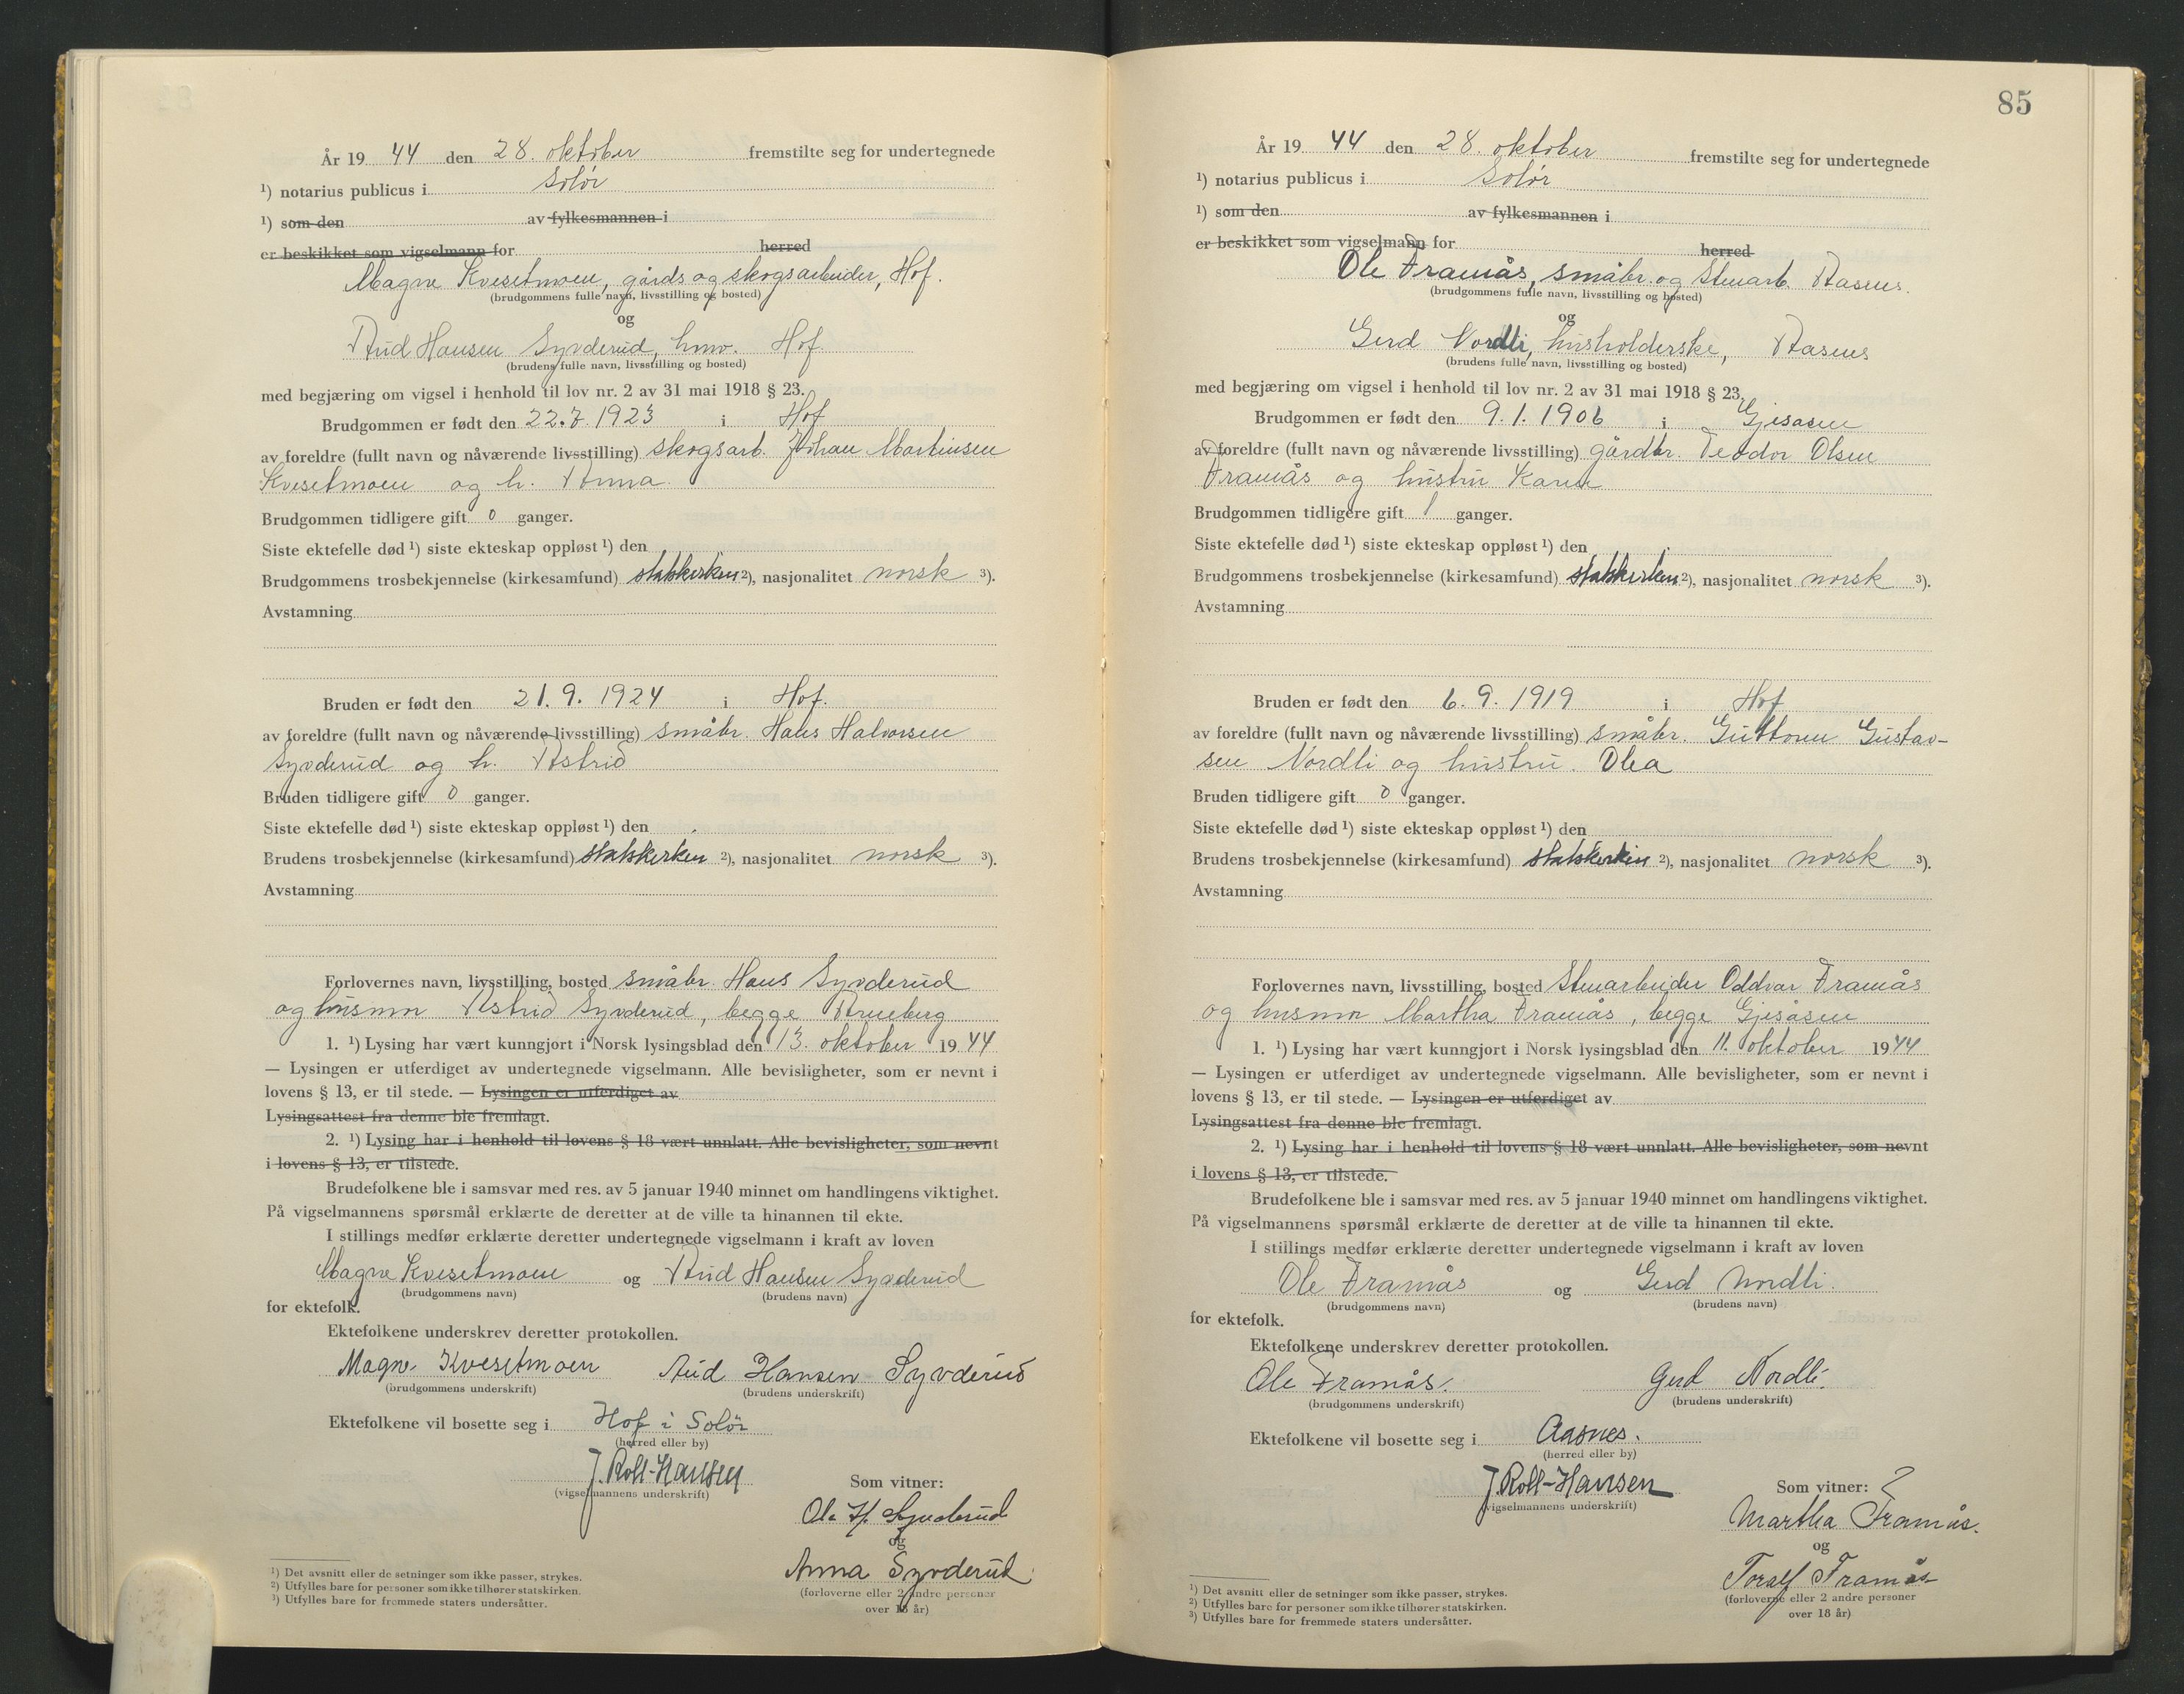 År 19 44 den 28. oktober fremstilte seg for undertegnede
¹) notarius publicus i Solør
¹) som den av fylkesmannen i
er beskikket som vigselmann for herred
Magne Kvesetmoen, gårds og skogsarbeider, Hof.
(brudgommens fulle navn, livsstilling og bosted)
og
Aud Hansen Syvderud, hmv. Hof
(brudens fulle navn, livsstilling og bosted)
med begjæring om vigsel i henhold til lov nr. 2 av 31 mai 1918 § 23.
Brudgommen er født den 22.7.1923 i Hof
av foreldre (fullt navn og nåværende livsstilling) skogsarb. Johan Martinsen
Kvesetmoen og h. Anna
Brudgommen tidligere gift 0 ganger.
Siste ektefelle død ¹) siste ekteskap oppløst ¹) den
Brudgommens trosbekjennelse (kirkesamfund) statskirken ²), nasjonalitet norsk ³).
Avstamning
Bruden er født den 21. 9. 1924 i Hof.
av foreldre (fullt navn og nåværende livsstilling) småbr. Hans Halvorsen
Syvderud og h. Astrid
Bruden tidligere gift 0 ganger.
Siste ektefelle død ¹) siste ekteskap oppløst ¹) den
Brudens trosbekjennelse (kirkesamfund) statskirken ²), nasjonalitet norsk ³).
Avstamning
Forlovernes navn, livsstilling, bosted småbr. Hans Syvderud
og husmor Astrid Syvderud, begge Arneberg
1. ¹) Lysing har vært kunngjort i Norsk lysingsblad den 13. oktober 19 44
— Lysingen er utferdiget av undertegnede vigselmann. Alle bevisligheter, som er nevnt i
lovens § 13, er til stede. — Lysingen er utferdiget av
Lysingsattest fra denne ble fremlagt.
2. ¹) Lysing har i henhold til lovens § 18 vært unnlatt. Alle bevisligheter, som nevnt
i lovens § 13, er tilstede.
Brudefolkene ble i samsvar med res. av 5 januar 1940 minnet om handlingens viktighet.
På vigselmannens spørsmål erklærte de deretter at de ville ta hinannen til ekte.
I stillings medfør erklærte deretter undertegnede vigselmann i kraft av loven
Magne Kvesetmoen og Aud Hansen Syvderud
(brudgommens navn) (brudens navn)
for ektefolk.
Ektefolkene underskrev deretter protokollen.
Magne Kvesetmoen Aud Hansen Syvderud
(brudgommens underskrift) (brudens underskrift)
Ektefolkene vil bosette seg i Hof i Solør
(herred eller by)
J. Roll-Hansen
(vigselmannens underskrift)
Som vitner:
Ole H. Syvderud
og
Anna Syvderud.
(forloverne eller 2 andre personer
over 18 år)
¹) Det avsnitt eller de setninger som ikke passer, strykes.
²) Utfylles bare for personer som ikke tilhører statskirken.
³) Utfylles bare for fremmede staters undersåtter.
85
År 19 44 den 28. oktober fremstilte seg for undertegnede
¹) notarius publicus i Solør
¹) som den av fylkesmannen i
er beskikket som vigselmann for herred
Ole Framås, småbr. og Stenarb. Aasnes.
(brudgommens fulle navn, livsstilling og bosted)
og
Gerd Nordli, husholderske, Aasnes
(brudens fulle navn, livsstilling og bosted)
med begjæring om vigsel i henhold til lov nr. 2 av 31 mai 1918 § 23.
Brudgommen er født den 9. 1. 1906 i Gjesåsen
av foreldre (fullt navn og nåværende livsstilling) gårdbr. Teodor Olsen
Framås og hustru Karen
Brudgommen tidligere gift 1 ganger.
Siste ektefelle død ¹) siste ekteskap oppløst ¹) den
Brudgommens trosbekjennelse (kirkesamfund) statskirken ²), nasjonalitet norsk ³).
Avstamning
Bruden er født den 6. 9. 1919 i Hof
av foreldre (fullt navn og nåværende livsstilling) småbr. Guttorm Gustav-
sen Nordli og hustru. Olea
Bruden tidligere gift 0 ganger.
Siste ektefelle død ¹) siste ekteskap oppløst ¹) den
Brudens trosbekjennelse (kirkesamfund) statskirken ²), nasjonalitet norsk ³).
Avstamning
Forlovernes navn, livsstilling, bosted Stenarbeider Oddvar Framås
og husmor Martha Framås, begge Gjesåsen
1. ¹) Lysing har vært kunngjort i Norsk lysingsblad den 11. oktober 19 44
— Lysingen er utferdiget av undertegnede vigselmann. Alle bevisligheter, som er nevnt i
lovens § 13, er til stede. — Lysingen er utferdiget av
Lysingsattest fra denne ble fremlagt.
2. ¹) Lysing har i henhold til lovens § 18 vært unnlatt. Alle bevisligheter, som nevnt
i lovens § 13, er tilstede.
Brudefolkene ble i samsvar med res. av 5 januar 1940 minnet om handlingens viktighet.
På vigselmannens spørsmål erklærte de deretter at de ville ta hinannen til ekte.
I stillings medfør erklærte deretter undertegnede vigselmann i kraft av loven
Ole Framås og Gerd Nordli.
(brudgommens navn) (brudens navn)
for ektefolk.
Ektefolkene underskrev deretter protokollen.
Ole Framås. Gerd Nordli.
(brudgommens underskrift) (brudens underskrift)
Ektefolkene vil bosette seg i Aasnes.
(herred eller by)
J. Roll-Hansen
(vigselmannens underskrift)
Som vitner:
Martha Framås.
og
Toralf Framås
(forloverne eller 2 andre personer
over 18 år)
¹) Det avsnitt eller de setninger som ikke passer, strykes.
²) Utfylles bare for personer som ikke tilhører statskirken.
³) Utfylles bare for fremmede staters undersåtter.